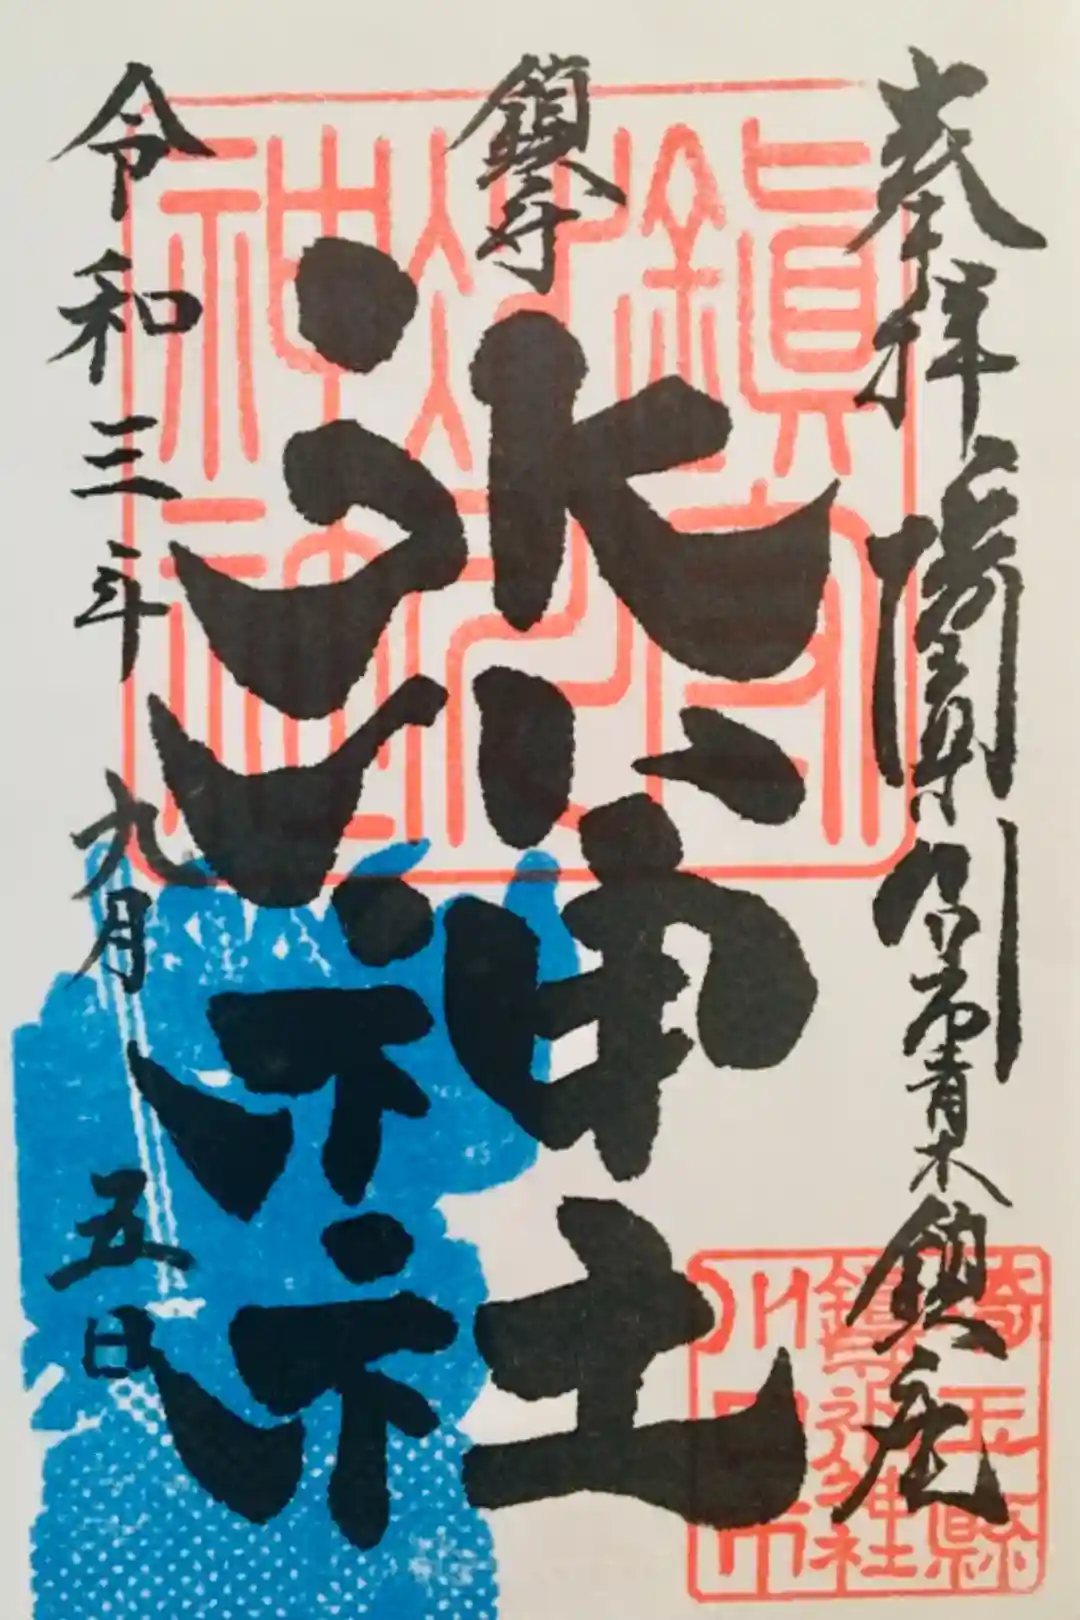 奉拝
埼玉県川口市青木鎮座
鎮守
氷川神社
令和三年九月五日
鎮守
氷川
神社
埼玉縣
鎮守氷川神社
川口市